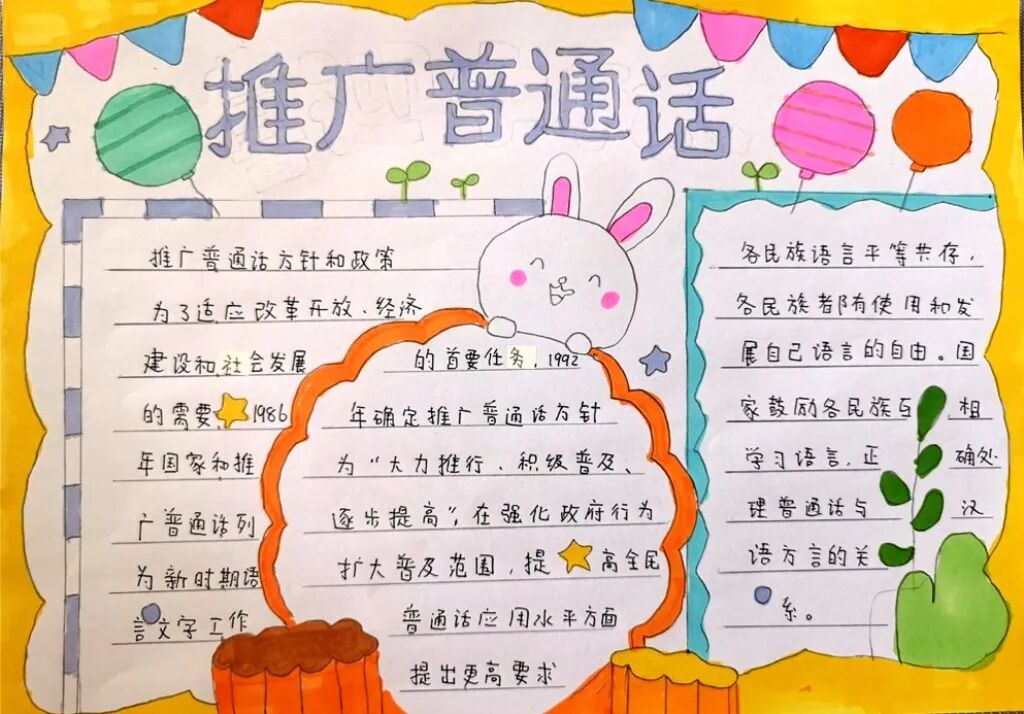 推广普通话
推广普通话方针和政策
为了适应改革开放、经济
建设和社会发展
的需要,1986
年国家和推
广普通话列
为新时期语
言文字工作
的首要任务,1992
年确定推广普通话方针
为“大力推行、积级普及、
逐步提高”,在强化政府行为
扩大普及范围,提高全民
普通话应用水平方面
提出更高要求
各民族语言平等共存,
各民族都有使用和发
展自己语言的自由。国
家鼓励各民族互相
学习语言,正确处
理普通话与汉
语方言的关
系。